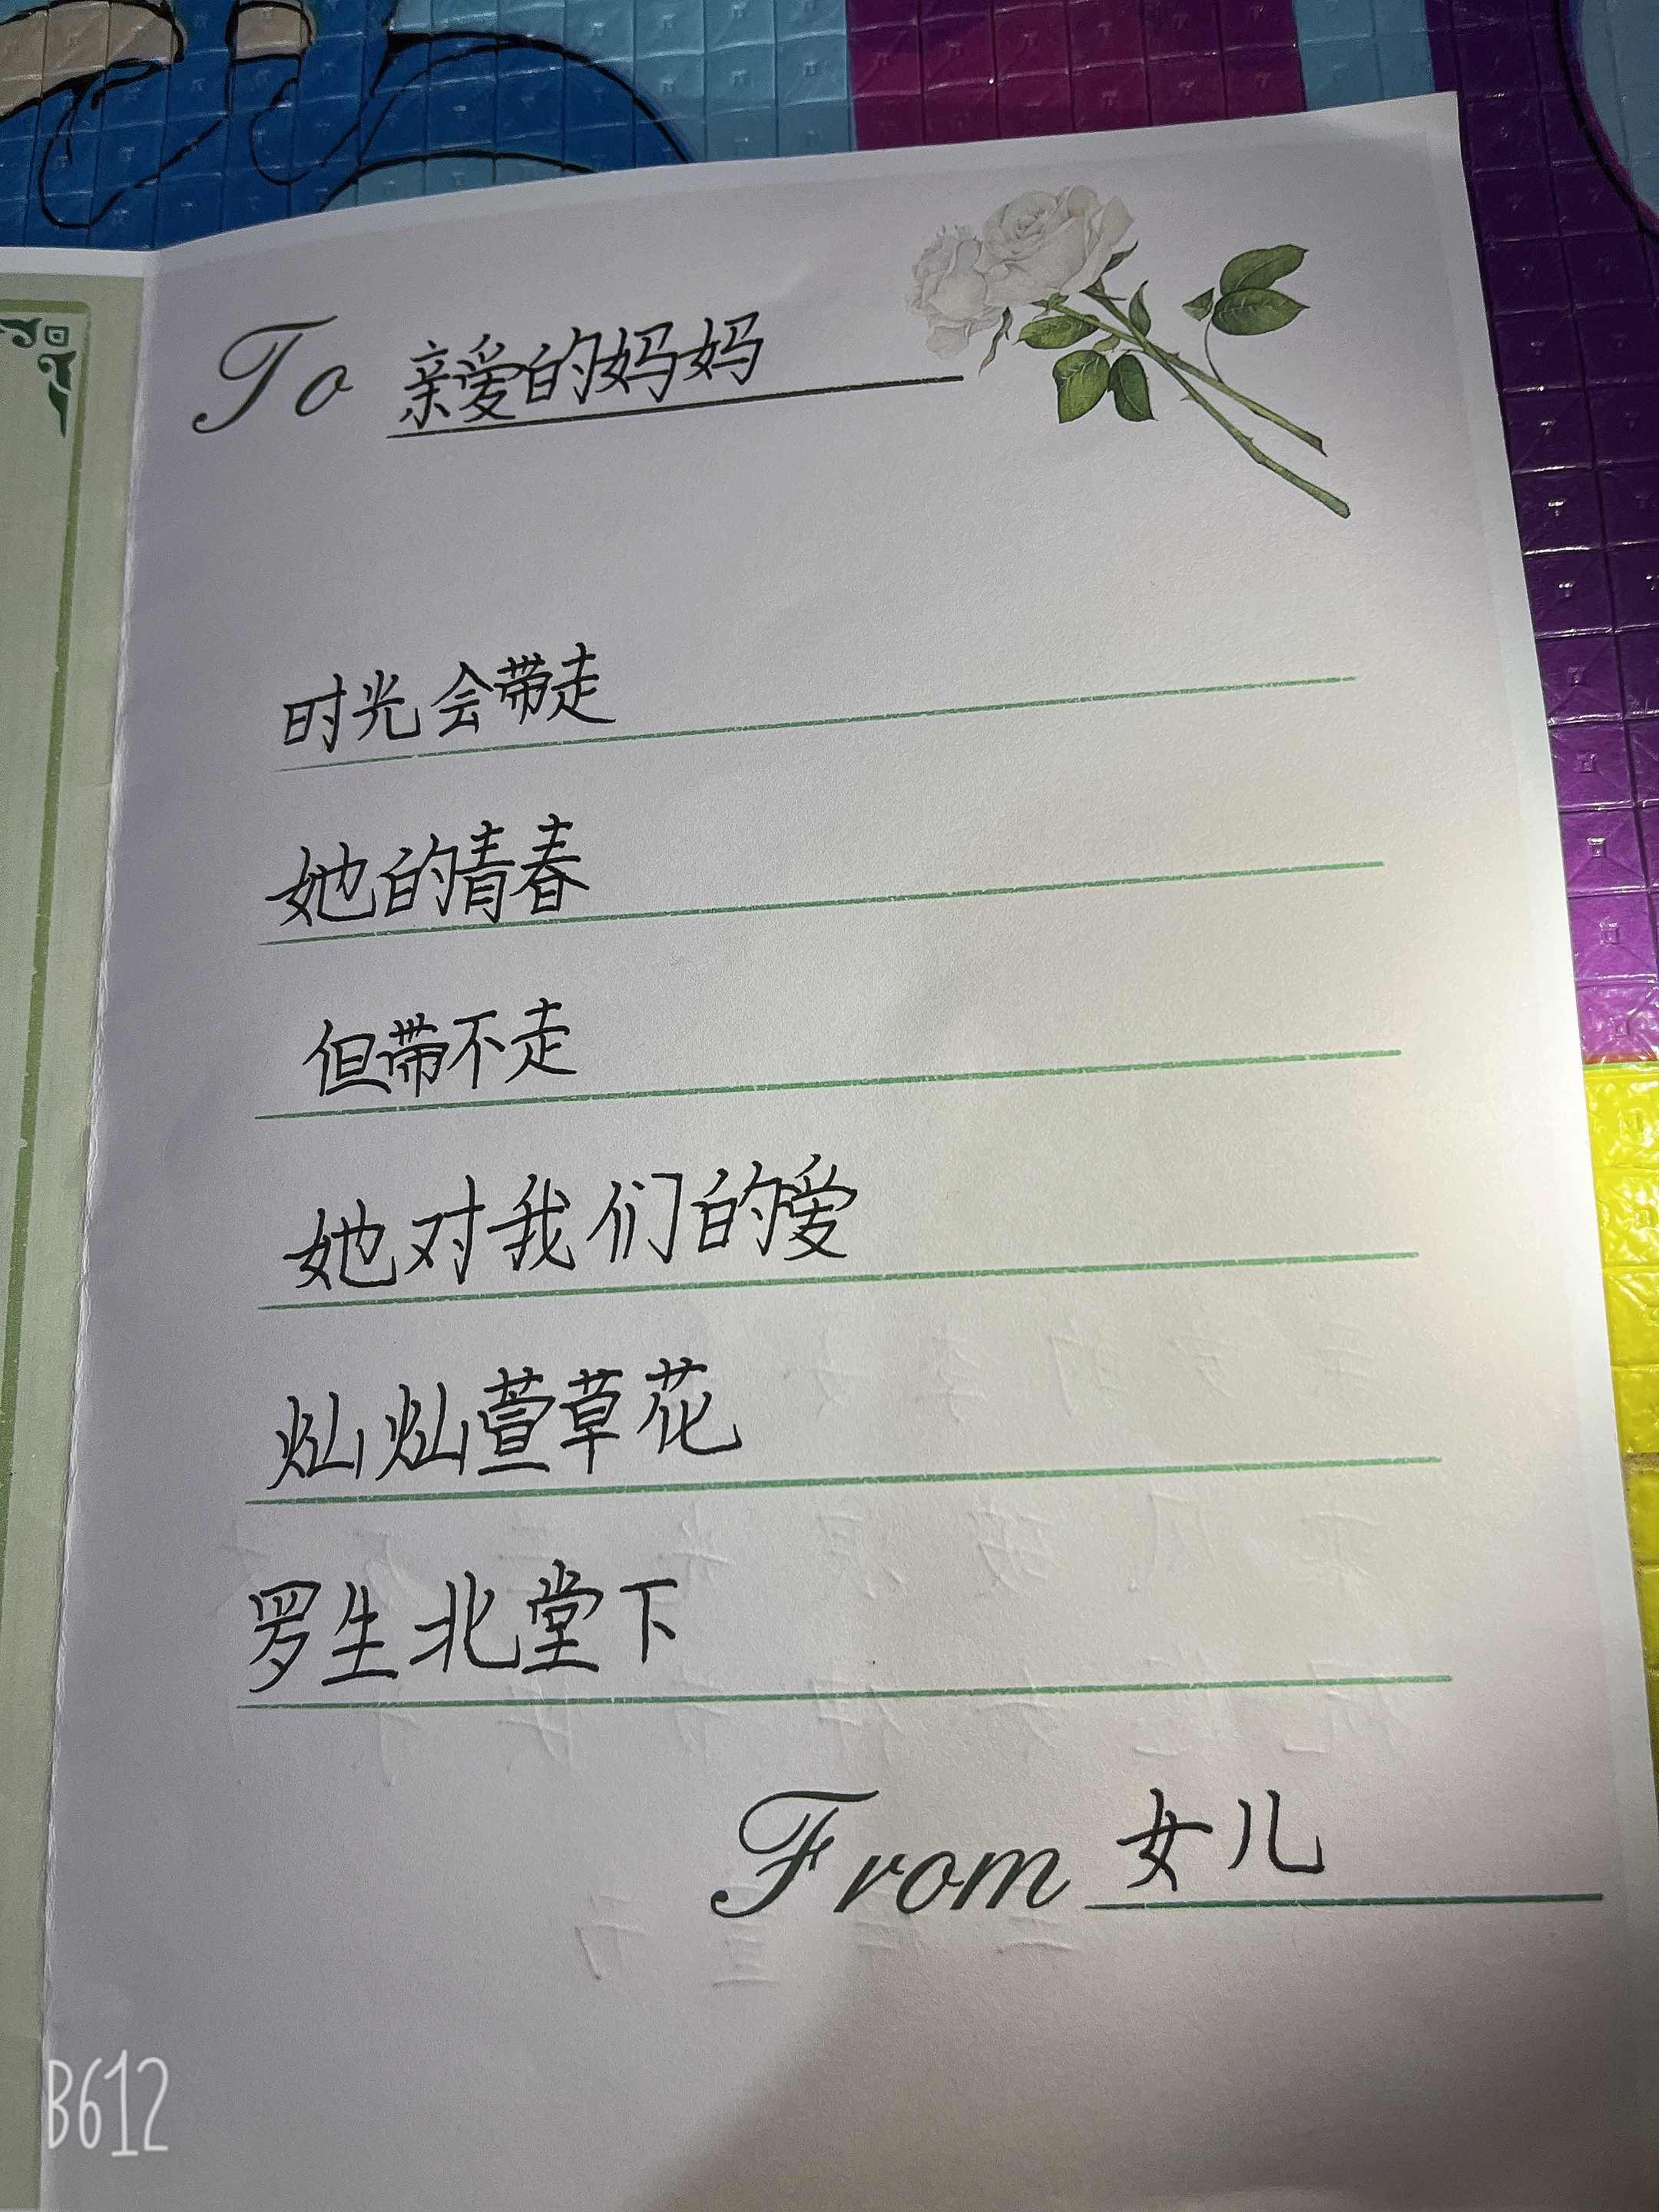 To 亲爱的妈妈
时光会带走
她的青春
但带不走
她对我们的爱
灿灿萱草花
罗生北堂下
From 女儿
B612